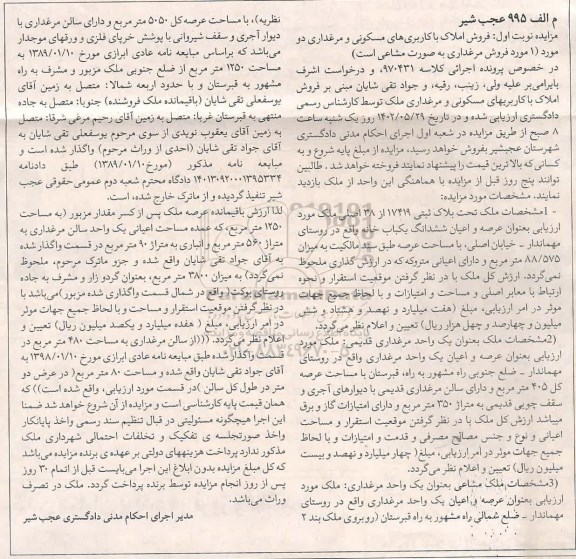 م الف ۹۹۵ عجب شیر
مزایده نوبت اول: فروش املاک با کاربری‌های مسکونی و مرغداری دو
مورد (۱ مورد فروش مرغداری به صورت مشاعی است)
در خصوص پرونده اجرائی کلاسه ۹۷۰۴۳۱، و درخواست اشرف
بایرامی بر علیه ولی، زینب، رقیه، و جواد تقی شایان مبنی بر فروش
املاک با کاربریهای مسکونی و مرغداری ملک توسط کارشناس رسمی
دادگستری ارزیابی شده و در تاریخ ۱۴۰۲/۰۵/۲۹ روز یک شنبه ساعت
۸ صبح از طریق مزایده در شعبه اول اجرای احکام مدنی دادگستری
شهرستان عجبشیر بفروش خواهد رسید، مزایده از مبلغ پایه شروع و به
کسانی که بالا ترین قیمت را پیشنهاد نمایند فروخته خواهد شد. طالبین
توانند پنج روز قبل از مزایده با هماهنگی این واحد از ملک بازدید
نمایند. مشخصات مورد مزایده:
- ۱مشخصات ملک تحت پلاک ثبتی ۱۷۴۱۹ از ۳۸ اصلی ملک مورد
ارزیابی بعنوان عرصه و اعیان ششدانگ یکباب خانه واقع در روستای
مهماندار ـ خیابان اصلی، با مساحت عرصه طبق سند مالکیت به میزان
۸۸/۵۷۵ متر مربع و دارای اعیانی متروکه که در ارزش گذاری ملحوظ
نمی‌گردد. ارزش کل ملک با در نظر گرفتن موقعیت استقرار و نحوه
ارتباط با معابر اصلی و مساحت و امتیازات و با لحاظ جمیع جهات
موثر در امر ارزیابی، مبلغ (هفت میلیارد و نهصد و هشتاد و شش
میلیون و چهارصد و چهل هزار ریال) تعیین و اعلام نظر می‌گردد.
(2مشخصات ملک بعنوان یک واحد مرغداری قدیمی: ملک مورد
ارزیابی بعنوان عرصه و اعیان یک واحد مرغداری واقع در روستای
مهماندار ـ ضلع جنوبی راه مشهور به راه، قبرستان با مساحت عرصه
کل ۴۰۵ متر مربع و دارای سالن مرغداری قدیمی با دیوارهای آجری و
سقف چوبی قدیمی به متراژ ۳۵۰ متر مربع و دارای امتیازات گاز و برق
میباشد ارزش کل ملک با در نظر گرفتن موقعیت استقرار و مساحت
اعیانی و نوع و جنس مصالح مصرفی و قدمت و امتیازات و با لحاظ
جمیع جهات موثر در امر ارزیابی، مبلغ( چهار میلیارد و نهصد و بیست
میلیون ریال) تعیین و اعلام نظر می‌گردد.
(3مشخصات ملک مشاعی بعنوان یک واحد مرغداری: ملک مورد
ارزیابی بعنوان عرصه و اعیان یک واحد مرغداری واقع در روستای
مهماندار ـ ضلع شمالی راه مشهور به راه قبرستان (روبروی ملک بند ۲
نظریه)، با مساحت عرصه کل ۵۰۵۰ متر مربع و دارای سالن مرغداری با
دیوار آجری و سقف شیروانی با پوشش خرپای فلزی و ورقهای موجدار
می‌باشد که براساس مبایعه نامه عادی ابرازی مورخ ۱۳۸۹/۰۱/۱۰ به
مساحت ۱۲۵۰ متر مربع از ضلع جنوبی ملک مزبور و مشرف به راه
مشهور به قبرستان و با حدود اربعه (شمالا: متصل به زمین آقای
یوسفعلی تقی شایان (باقیمانده ملک فروشنده) جنوبا: متصل به جاده
منتهی به قبرستان غربا: متصل به زمین آقای رحیم مرغی شرقا: متصل
به زمین آقای یعقوب نویدی از سوی مرحوم یوسفعلی تقی شایان به
آقای جواد تقی شایان (احدی از وراث مرحوم) واگذار شده است و
مبایعه نامه مذکور (مورخ۱۳۸۹/۰۱/۱۰) طبق دادنامه
۱۴۰۱۳۰۹۲۰۰۰۱۳۹۵۳۳۴ دادگاه محترم شعبه دوم عمومی حقوقی عجب
شیر تنفیذ گردیده و از ماترک خارج شده، است.
لذا ارزش باقیمانده عرصه ملک پس از کسر مقدار مزبور (به مساحت
۱۲۵۰ متر مربع، که عمده مساحت اعیانی یک واحد سالن مرغداری به
متراژ ۵۶۰ متر مربع و انباری به متراژ ۹۰ متر مربع در قسمت واگذار شده
به آقای جواد تقی شایان واقع شده و جزو ماترک مرحوم، ملحوظ
نمی‌گردد) به میزان ۳۸۰۰ متر مربع، بعنوان گردو زار و مشرف به جاده
روستای یوکت( واقع در شمال قسمت واگذاری شده مزبور)می‌باشد با
در نظر گرفتن موقعیت استقرار و مساحت و با لحاظ جمیع جهات موثر
در امر ارزیابی، مبلغ ( هفده میلیارد و یکصد میلیون ریال) تعیین و
اعلام نظر می‌گردد. (((از سالن مرغداری به مساحت ۴۸۰ متر مربع در
قسمت واگذار شده طبق مبایعه نامه عادی ابرازی مورخ ۱۳۹۸/۰۱/۱۰ به
آقای جواد تقی شایان واقع شده و مساحت ۸۰ متر مربع( در عرض دو
متر در طول کل سالن )در قسمت مورد ارزیابی، واقع شده است)) که
همان قیمت پایه کارشناسی است و مزایده از آن شروع خواهد شد ضمنا
این اجرا هیچگونه مسئولیتی در قبال تنظیم سند رسمی واخذ پایانکار
واخذ صورتجلسه ی تفکیک و تخلفات احتمالی شهرداری ملک
مذکور ندارد پرداخت هزینههای دولتی بر عهده ی برنده مزایده می‌باشد
که کل مبلغ مزایده بدون ابلاغ این اجرا می‌بایست قبل از اتمام ۳۰ روز
پس از روز انجام مزایده توسط برنده پرداخت گردد. ملک در تصرف
وراث می‌باشد.
مدیر اجرای احکام مدنی دادگستری عجب شیر